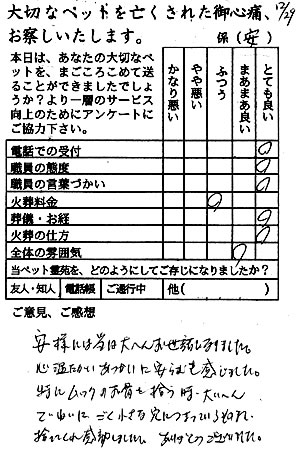 大切なペットを亡くされた御心痛、
お察しいたします。
12/29
係(安)
本日は、あなたの大切なペ
ットを、まごころこめて送
ることができましたでしょ
うか?より一層のサービス
向上のためにアンケートに
ご協力下さい。
かなり悪い
やや悪い
ふつう
まあまあ良い
とても良い
電話での受付
職員の態度
職員の言葉づかい
火葬料金
葬儀・お経
火葬の仕方
全体の雰囲気
当ペット霊苑を、どのようにしてご存じになりましたか?
友人・知人 電話帳 ご通行中 他( )
ご意見、ご感想
安様には今日は大へんお世話になりました。
心温たかいあつかいに安らぎを感じました。
特にムックのお骨を拾う時、大いへん
ていねいに ごく小さな
拾てくれ感動しました。ありがとうございました。